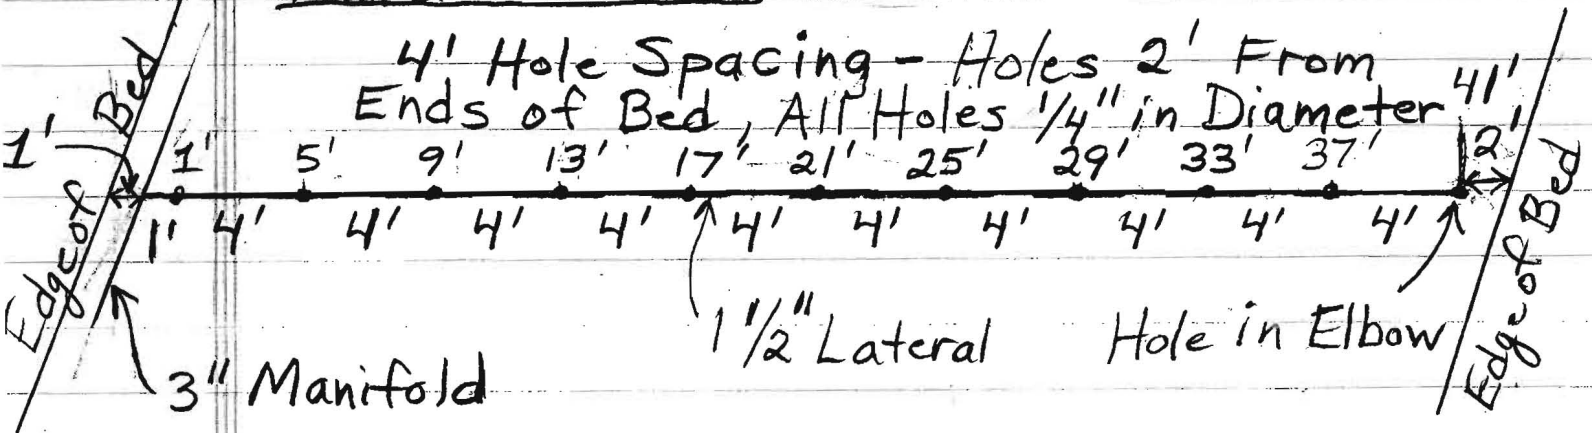 4' Hole Spacing - Holes 2' From
Ends of Bed, All Holes 1/4" in Diameter
41'
1'
Edge of Bed
1' 5' 9' 13' 17' 21' 25' 29' 33' 37'
2'
1' 4' 4' 4' 4' 4' 4' 4' 4' 4' 4'
Edge of Bed
1 1/2" Lateral
Hole in Elbow
3" Manifold